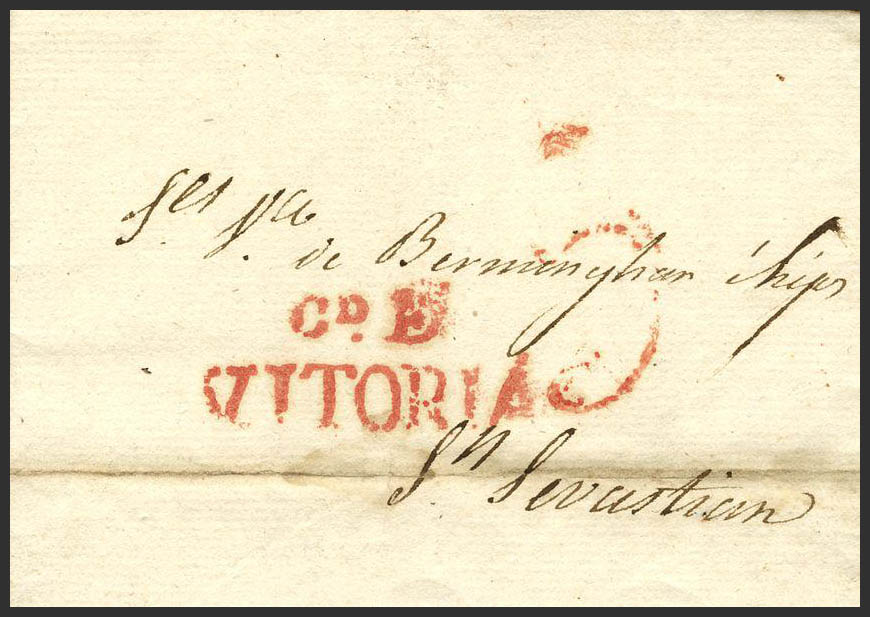 Sres Vda
de Bermingham é hijos
CD. E
VITORIA
Sn Sevastian